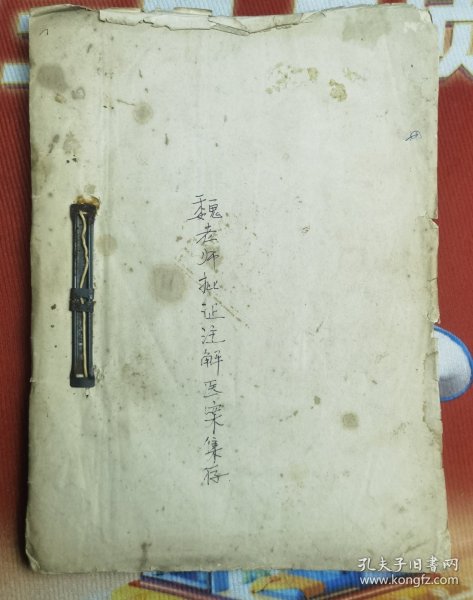 魏老师批证注解医案集存
孔夫子旧书网
www.kongfz.com